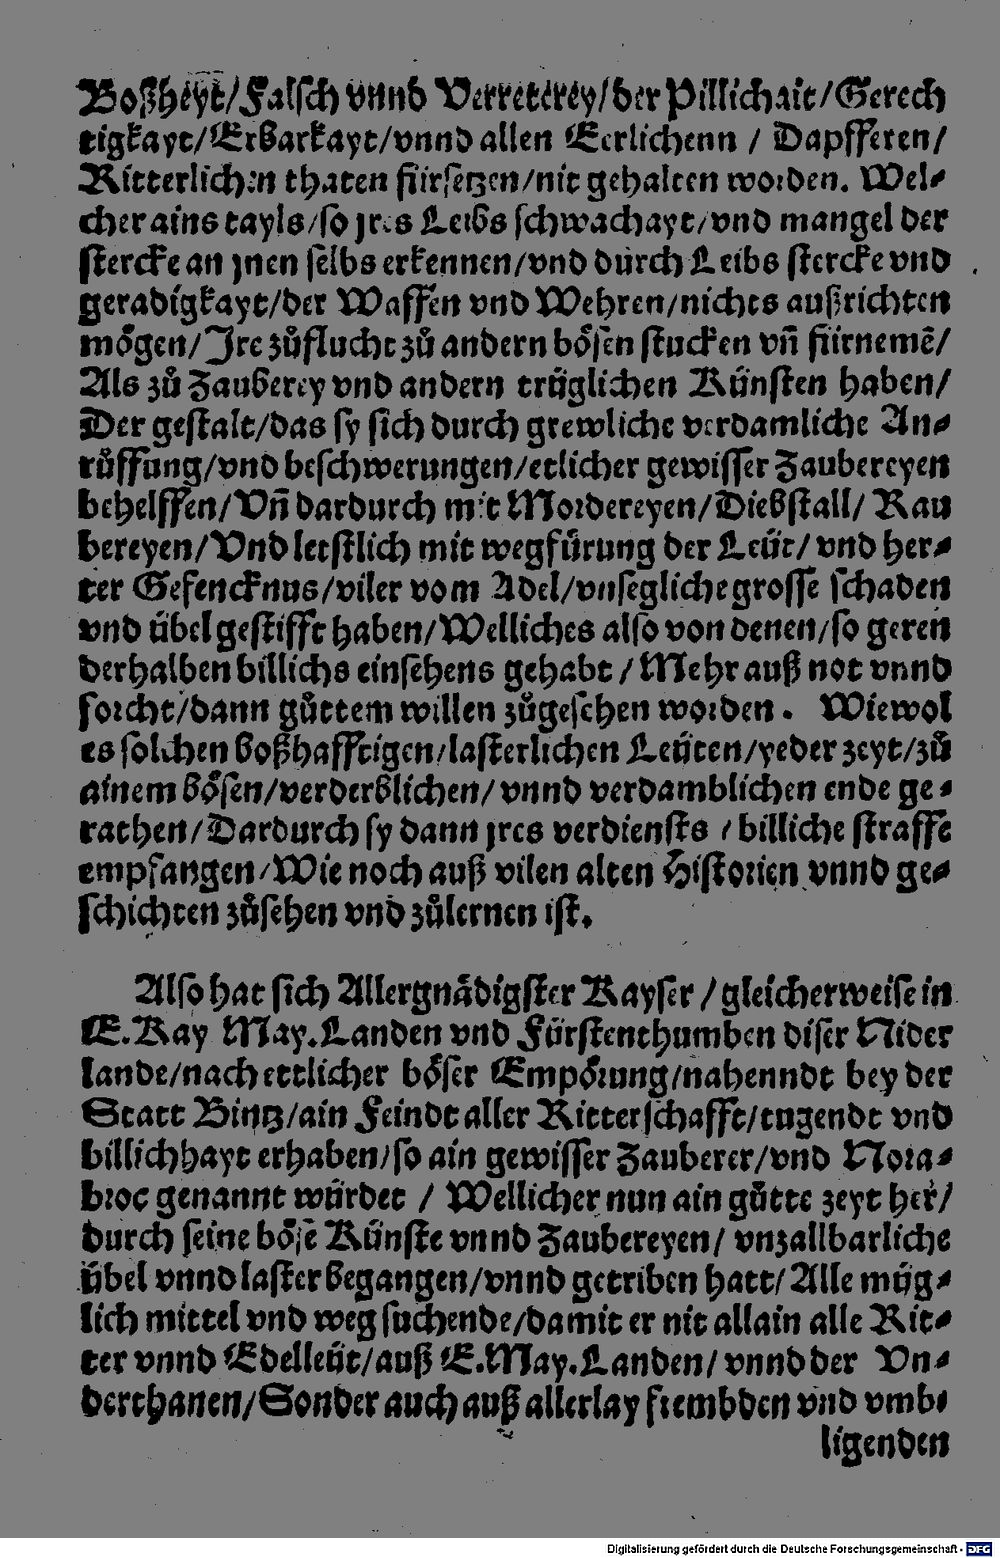 Boßheyt/Falsch vnnd Verreterey/der Pillichait/Gerech
tigkayt/Erbarkayt/vnnd allen Eerlichenn / Dapfferen/
Ritterlichen thaten fürsetzen/nit gehalten worden. Wel⸗
cher ains tayls/so jres Leibs schwachayt/vnd mangel der
stercke an jnen selbs erkennen/vnd durch Leibs stercke vnd
geradigkayt/der Waffen vnd Wehren/nichts außrichten
mögen/Jre zůflucht zů andern bösen stucken vñ fürnemē/
Als zů Zauberey vnd andern trüglichen Künsten haben/
Der gestalt/das sy sich durch grewliche verdamliche An⸗
růffung/vnd beschwerungen/etlicher gewisser Zaubereyen
behelffen/Vñ dardurch mit Mordereyen/Diebstall/ Rau
bereyen/Vnd letstlich mit wegfürung der Leüt/ vnd her⸗
ter Gefencknus/viler vom Adel/vnsegliche grosse schaden
vnd übel gestifft haben/Welliches also von denen/so geren
derhalben billichs einsehens gehabt / Mehr auß not vnnd
forcht/dann gůttem willen zůgesehen worden. Wiewol
es solchen boßhafftigen/lasterlichen Leüten/yeder zeyt/zů
ainem bösen/verderblichen/ vnnd verdamblichen ende ge⸗
rathen/Dardurch sy dann jres verdiensts / billiche straffe
empfangen/Wie noch auß vilen alten Historien vnnd ge⸗
schichten zůsehen vnd zůlernen ist.
Also hat sich Allergnädigster Kayser / gleicherweise in
E.Kay May.Landen vnd Fürstenthumben diser Nider
lande/nach ettlicher böser Empörung/nahenndt bey der
Statt Bintz/ain Feindt aller Ritterschafft/tugendt vnd
billichhayt erhaben/so ain gewisser Zauberer/vnd Nora⸗
broc genannt würdet / Wellicher nun ain gůtte zeyt her/
durch seine bösē Künste vnnd Zaubereyen/ vnzallbarliche
übel vnnd laster begangen/vnnd getriben hatt/Alle müg⸗
lich mittel vnd weg suchende/damit er nit allain alle Rit⸗
ter vnnd Edelleüt/auß E.May.Landen/ vnnd der Vn⸗
derthanen/Sonder auch auß allerlay frembden vnd vmb⸗
ligenden
Digitalisierung gefördert durch die Deutsche Forschungsgemeinschaft - DFG